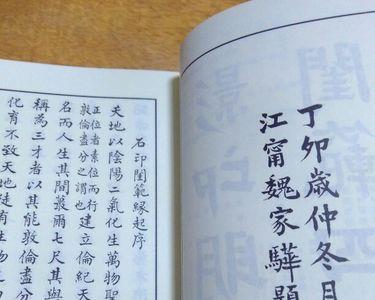 丁卯歲仲冬月
江甯魏家驊題
石印閨範緣起序
天地以陰陽二氣化生萬物聖
正位者素位而行
敦倫盡分之謂也
建立倫紀天
名而人生其間藐爾七尺其與
稱為三才者以其能敦倫盡分
化育不致天地徒有生物